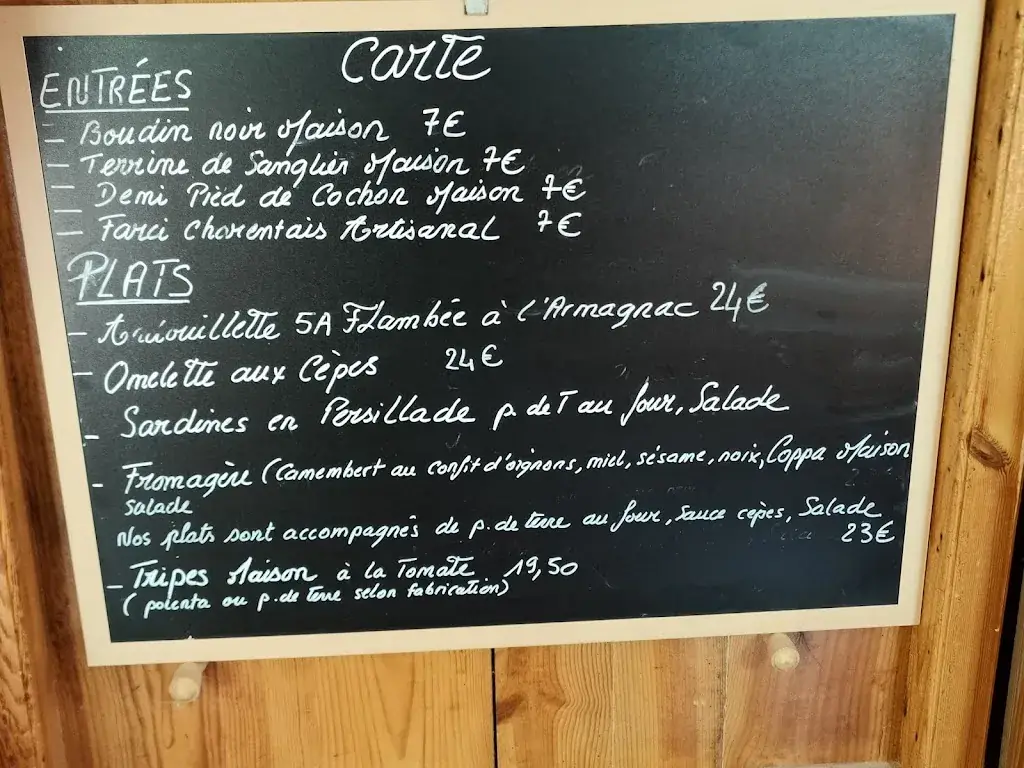 Carte
ENTRÉES
- Boudin noir Maison 7€
- Terrine de Sanglier Maison 7€
- Demi Pied de Cochon Maison 7€
- Farci Charentais Artisanal 7€
PLATS
- Andouillette 5A Flambée à l'Armagnac 24€
- Omelette aux Cèpes 24€
- Sardines en Persillade p. de T au four, Salade
- Fromagère (Camembert au confit d'oignons, miel, sésame, noix, Coppa Maison
salade
Nos plats sont accompagnés de p. de terre au four, sauce cèpes, Salade
23€
- Tripes Maison à la Tomate 19,50
(polenta ou p. de terre selon fabrication)